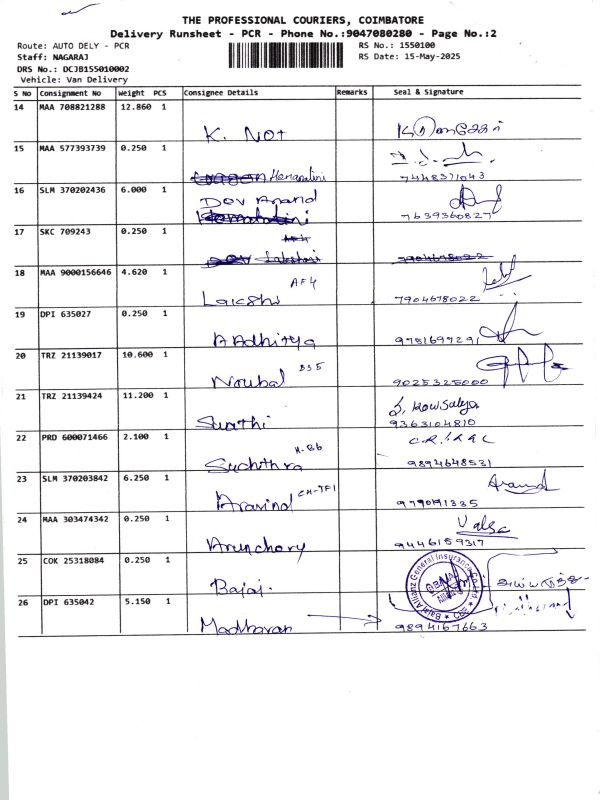 THE PROFESSIONAL COURIERS, COIMBATORE
Delivery Runsheet - PCR - Phone No.:9047080280 - Page No.:2
Route: AUTO DELY - PCR RS No.: 1550100
Staff: NAGARAJ RS Date: 15-May-2025
DRS No.: DCJB155010002
Vehicle: Van Delivery
S No Consignment No Weight PCS Consignee Details Remarks Seal & Signature
14 MAA 708821288 12.860 1
K. Not
15 MAA 577393739 0.250 1
7448371043
16 SLM 370202436 6.000 1
Dev Anand
7639360827
17 SKC 709243 0.250 1
7904678022
18 MAA 9000156646 4.620 1
AF4
7904678022
19 DPI 635027 0.250 1
AAdhitya 9781697291
20 TRZ 21139017 10.600 1
Noubal B35
9025325000
21 TRZ 21139424 11.200 1
S. Kowsalya
9363104810
22 PRD 600071466 2.100 1
H-86
Suchithra 9894648531
23 SLM 370203842 6.250 1
Aravind Aravind
24 MAA 303474342 0.250 1
Valsa
9446159317
25 COK 25318084 0.250 1
Bajaj.
Bajaj Allianz General Insurance Co. Ltd.
CBE
26 DPI 635042 5.150 1
Madhavan 9894167663